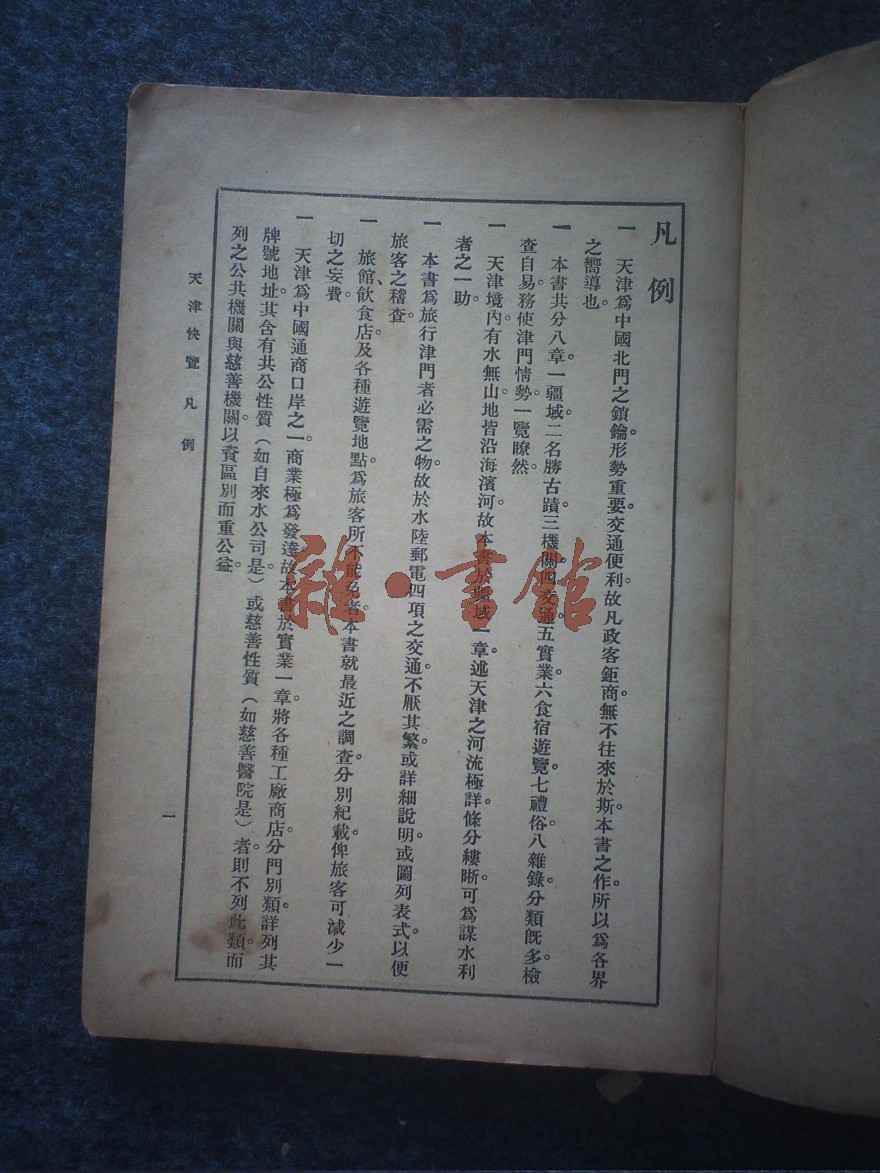 凡例
一　天津爲中國北門之鎖鑰形勢重要。交通便利。故凡政客鉅商。無不往來於斯。本書之作。所以爲各界
之嚮導也。
一　本書共分八章。一疆域。二名勝古蹟。三機關。四交通。五實業。六食宿遊覽。七禮俗。八雜錄。分類旣多。檢
查自易。務使津門情勢。一覽瞭然。
一　天津境內。有水無山。地皆沿海濱河。故本書於疆域一章。述天津之河流極詳。條分縷晰。可爲謀水利
者之一助。
一　本書爲旅行津門者必需之物。故於水陸郵電四項之交通。不厭其繁。或詳細說明。或圖列表式。以便
旅客之稽查。
一　旅館、飲食店。及各種遊覽地點。爲旅客所不能免者。本書就最近之調查。分別紀載。俾旅客可減少一
切之妄費。
一　天津爲中國通商口岸之一。商業極爲發達。故本書於實業一章。將各種工廠商店。分門別類。詳列其
牌號地址。其含有共公性質（如自來水公司是）或慈善性質（如慈善醫院是）者。則不列此類。而
列之公共機關與慈善機關。以資區別而重公益。
天津快覽　凡例
一
雜·書館